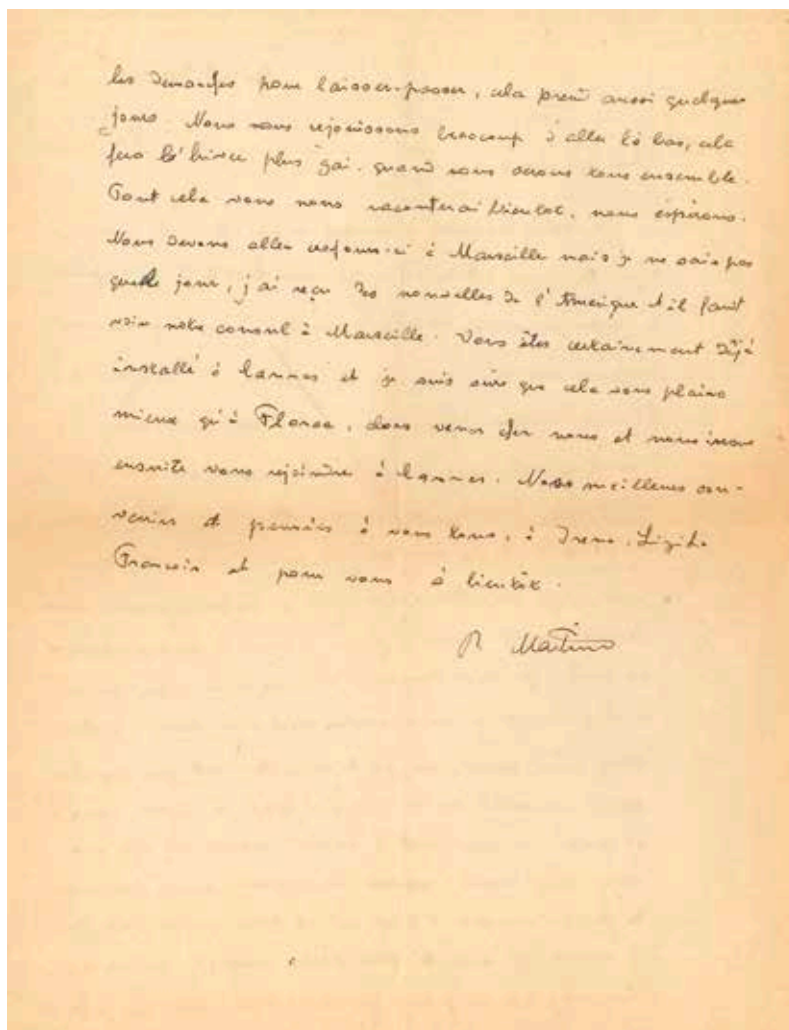 les demandes pour laisser-passer, cela prend aussi quelques
jours. Nous nous rejouissons beaucoup d'aller là bas, cela
fera l'hiver plus gai. quand nous serons tous ensemble.
Tout cela vous nous racontterai bientot, nous espérons.
Nous devons aller ces jours-ci à Marseille mais je ne sais pas
quelle jour, j'ai reçu des nouvelles de l'Amerique et il faut
voir notre consul à Marseille. Vous êtes certainement déjà
installé à Cannes et je suis sûre que cela vous plaira
mieux qu'à, donc venez chez nous et nous irons
ensuite vous rejoindre à Cannes. Nos meilleures sou-
venirs et pensées à vous tous, à Irene,
François et pour vous à bientôt.